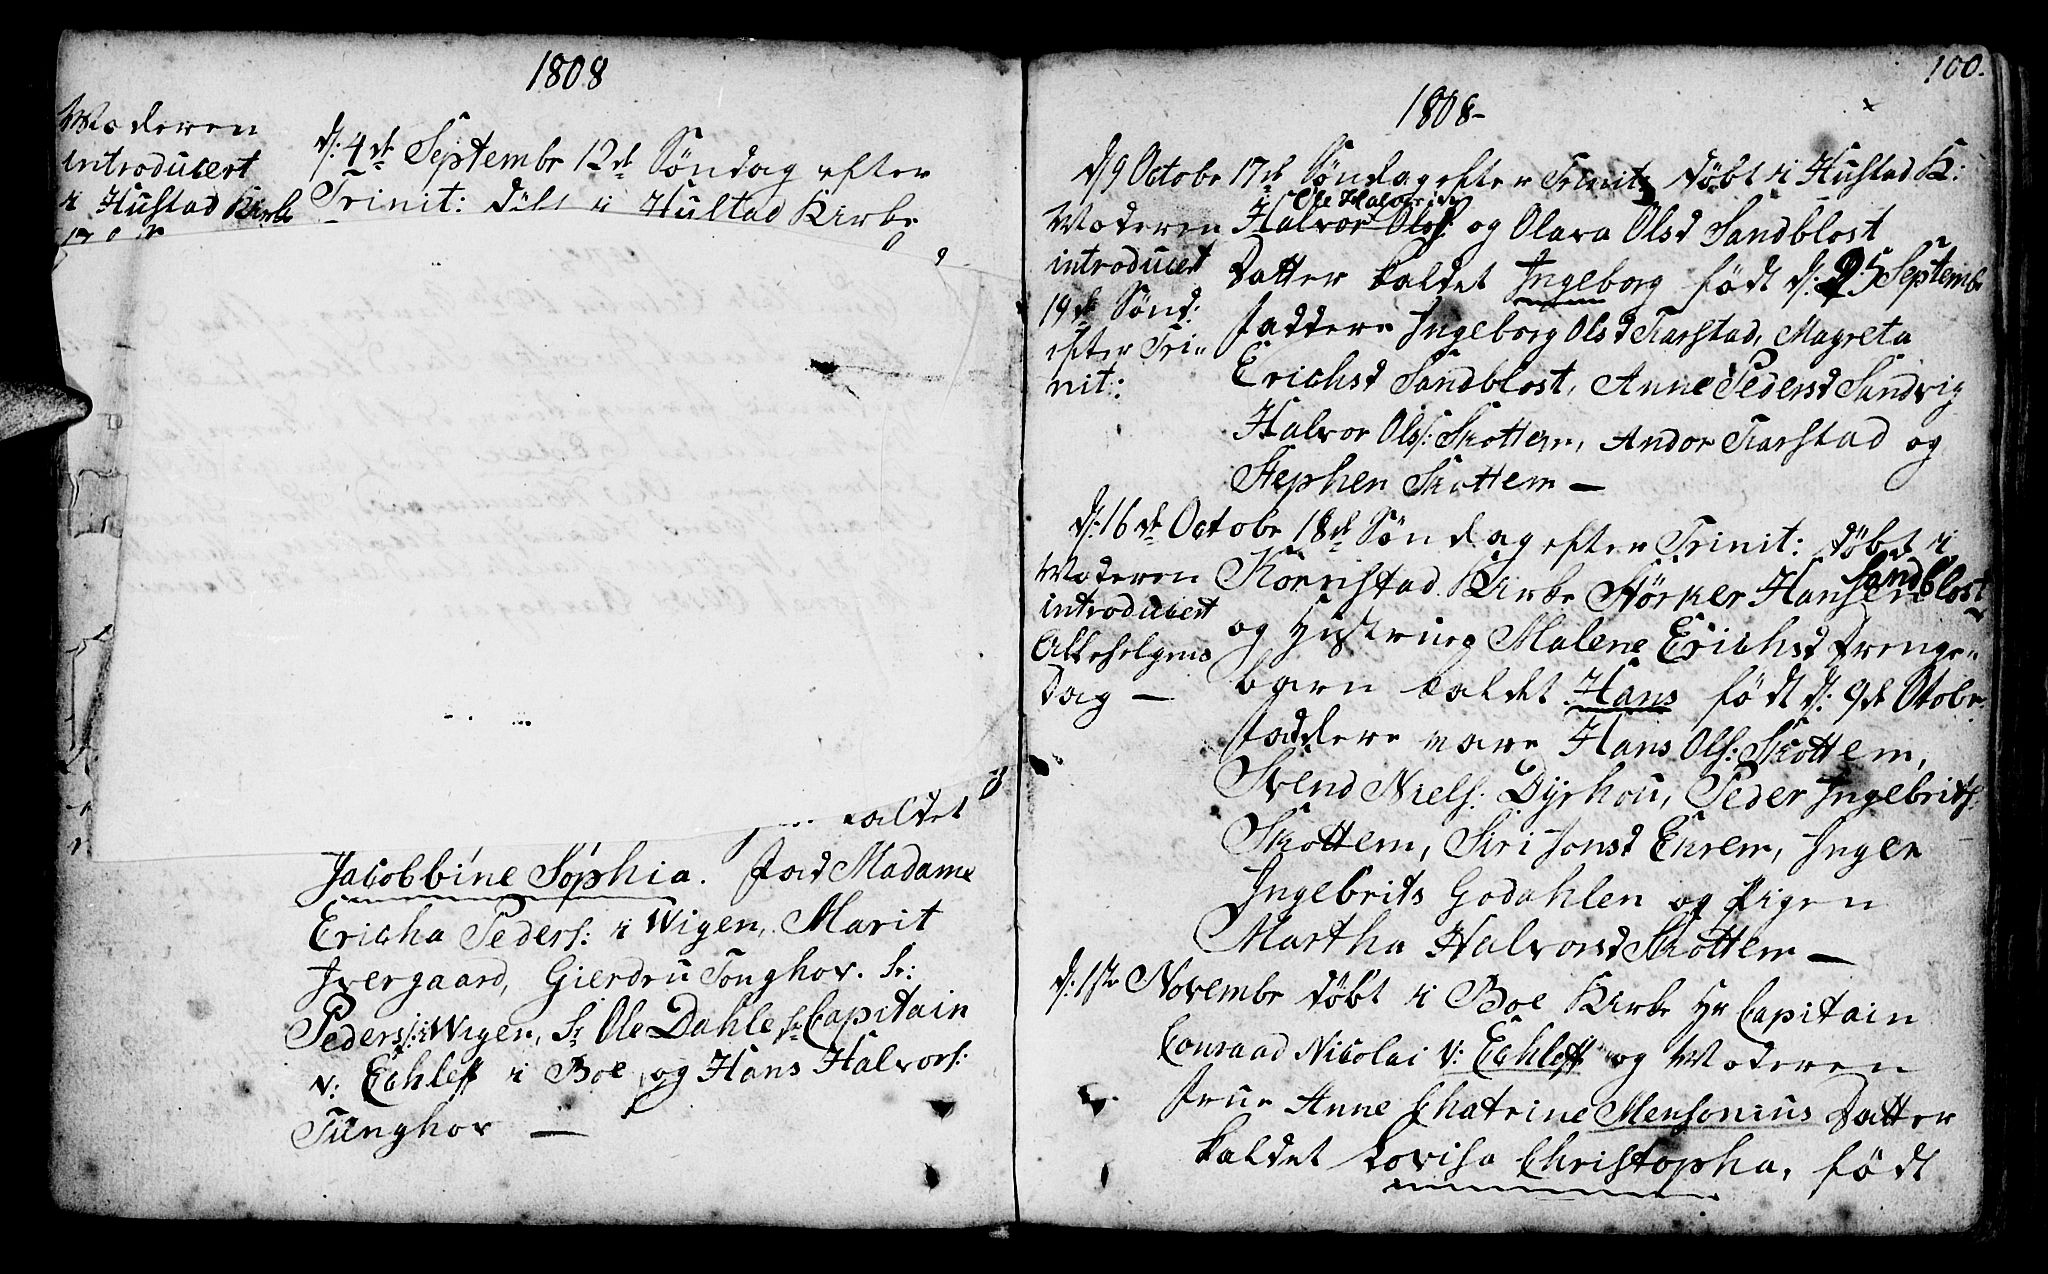 1808
Moderen
introducert
i Hustad Kirke
d: 4de Septembr 12te Söndag efter
Trinit: döbt i Hustad Kirke
kaldet
Jacobbine Sophia. Fad Madame
Ericha Peders: i Wigen, Marit
Ivergaard, Gierdru Tonghov. Sr:
Peders: i Wigen, Sr Ole Dahle, Sr Capitain
v: Echleff i Boe og Hans Halvors:
Tunghov —
100.
1808-
d 9 Octobr 17de Söndag efter Trinit döbt i Hustad K:
Moderen
introducert
19de Sönd:
efter Tri-
nit:
Ole Halvorsen
Halvor Ols: og Olava Olsd Sandblost
Datter kaldet Ingeborg född d: 25 Septembr
Faddere Ingeborg Olsd Karstad, Magreta
Erichsd Sandblost, Anne Pedersd Sandvig
Halvor Ols: Skottem, Andor Karstad og
Stephen Skottem —
d: 16de Octobr 18de Söndag efter Trinit: döbt i
Moderen
introducert
Allehelgens
Dag —
Kornstad Kirke Störker Hansen Sandblost
og Hustrue Malene Erichsd Drenge-
barn kaldet Hans född d: 9de Otobr
Faddere vare Hans Ols: Skottem,
Svend Niels: Dyrhou, Peder Ingebrits:
Skottem, Siri Jonsd Ekrem, Inger
Ingebrits Godahlen og Pigen
Martha Halvorsd Skottem —
d: 1ste Novembr döbt i Boe Kirke Hr Capitain
Conraad Nicolai v: Echleff og Moderen
Frue Anne Chatrine Mensonius Datter
kaldet Lovisa Christopha, född